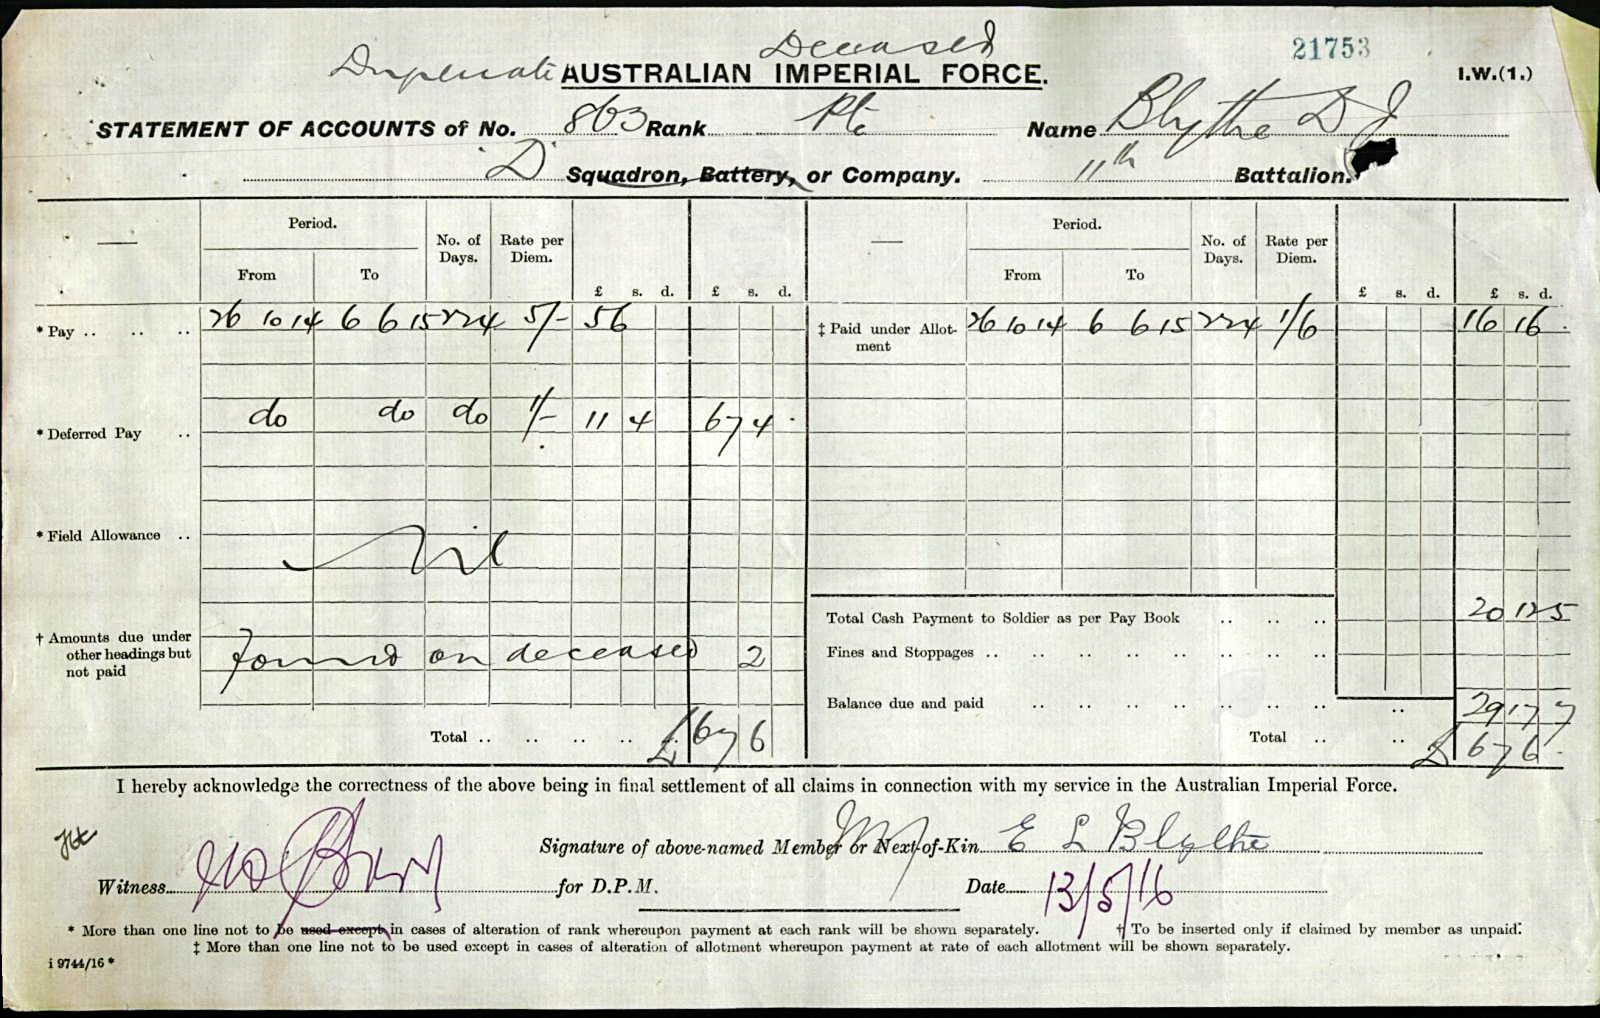 Deceased
Duplicate AUSTRALIAN IMPERIAL FORCE. 21753 I.W.(1.)
STATEMENT OF ACCOUNTS of No. 863 Rank Pte Name Blythe D J
"D" Squadron, Battery, or Company. 11th Battalion.
Period. No. of Days. Rate per Diem. Period. No. of Days. Rate per Diem.
From To £ s. d. £ s. d. From To £ s. d. £ s. d.
* Pay .. .. .. 26 10 14 6 6 15 224 5/- 56 ‡ Paid under Allotment 26 10 14 6 6 15 224 1/6 16 16
* Deferred Pay .. do do do 1/- 11 4 67 4
* Field Allowance .. Nil
Total Cash Payment to Soldier as per Pay Book .. .. .. 20 12 5
† Amounts due under other headings but not paid Found on deceased 2
Fines and Stoppages .. .. .. .. .. .. .. ..
Balance due and paid .. .. .. .. .. .. .. .. 29 17 7
Total .. .. .. .. £ 67 6 Total .. .. £ 67 6
I hereby acknowledge the correctness of the above being in final settlement of all claims in connection with my service in the Australian Imperial Force.
Signature of above-named Member or Next-of-Kin E L Blythe
Witness for D.P.M. Date 13/5/16
* More than one line not to be used except in cases of alteration of rank whereupon payment at each rank will be shown separately. † To be inserted only if claimed by member as unpaid.
‡ More than one line not to be used except in cases of alteration of allotment whereupon payment at rate of each allotment will be shown separately.
i 9744/16 *